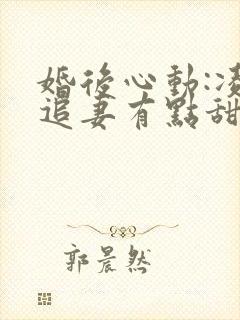 婚後心動:凌
追妻有點甜
郭晨然